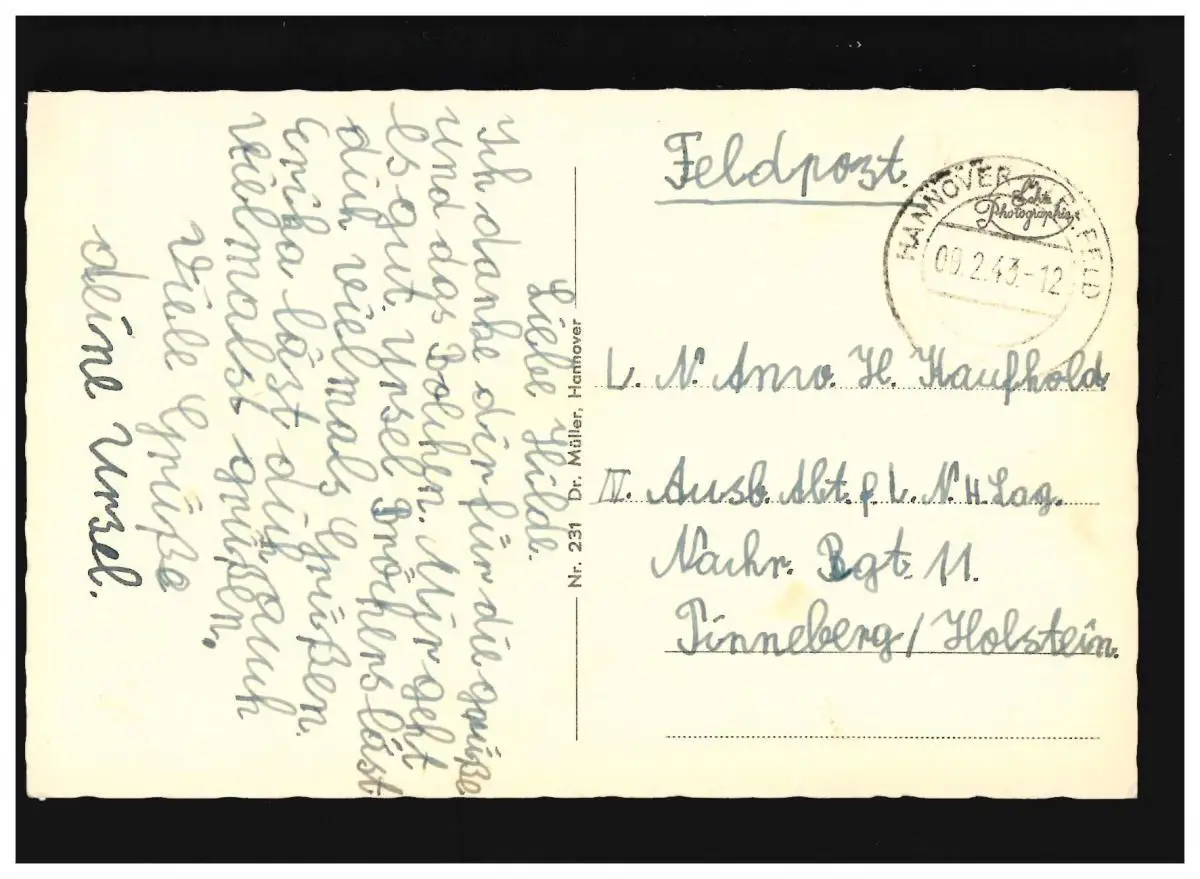 Feldpost.
HANNOVER
FELD
Echte
Photographie
09.2.43.-12
Liebe Hilde.
Ich danke dir für die grüße
und das Dolchen. Mir geht
es gut. Ursel Bröchers läst
dich vielmals Grüßen.
Erika läst dich auch
vielmalst grüßen.
Viele Grüße
deine Ursel.
Nr. 231 Dr. Müller, Hannover
L. N. Anw. H. Kaufhold
IV. Ausb. Abt. f. L. N. H. Lag.
Nachr. Rgt. 11.
Pinneberg / Holstein.